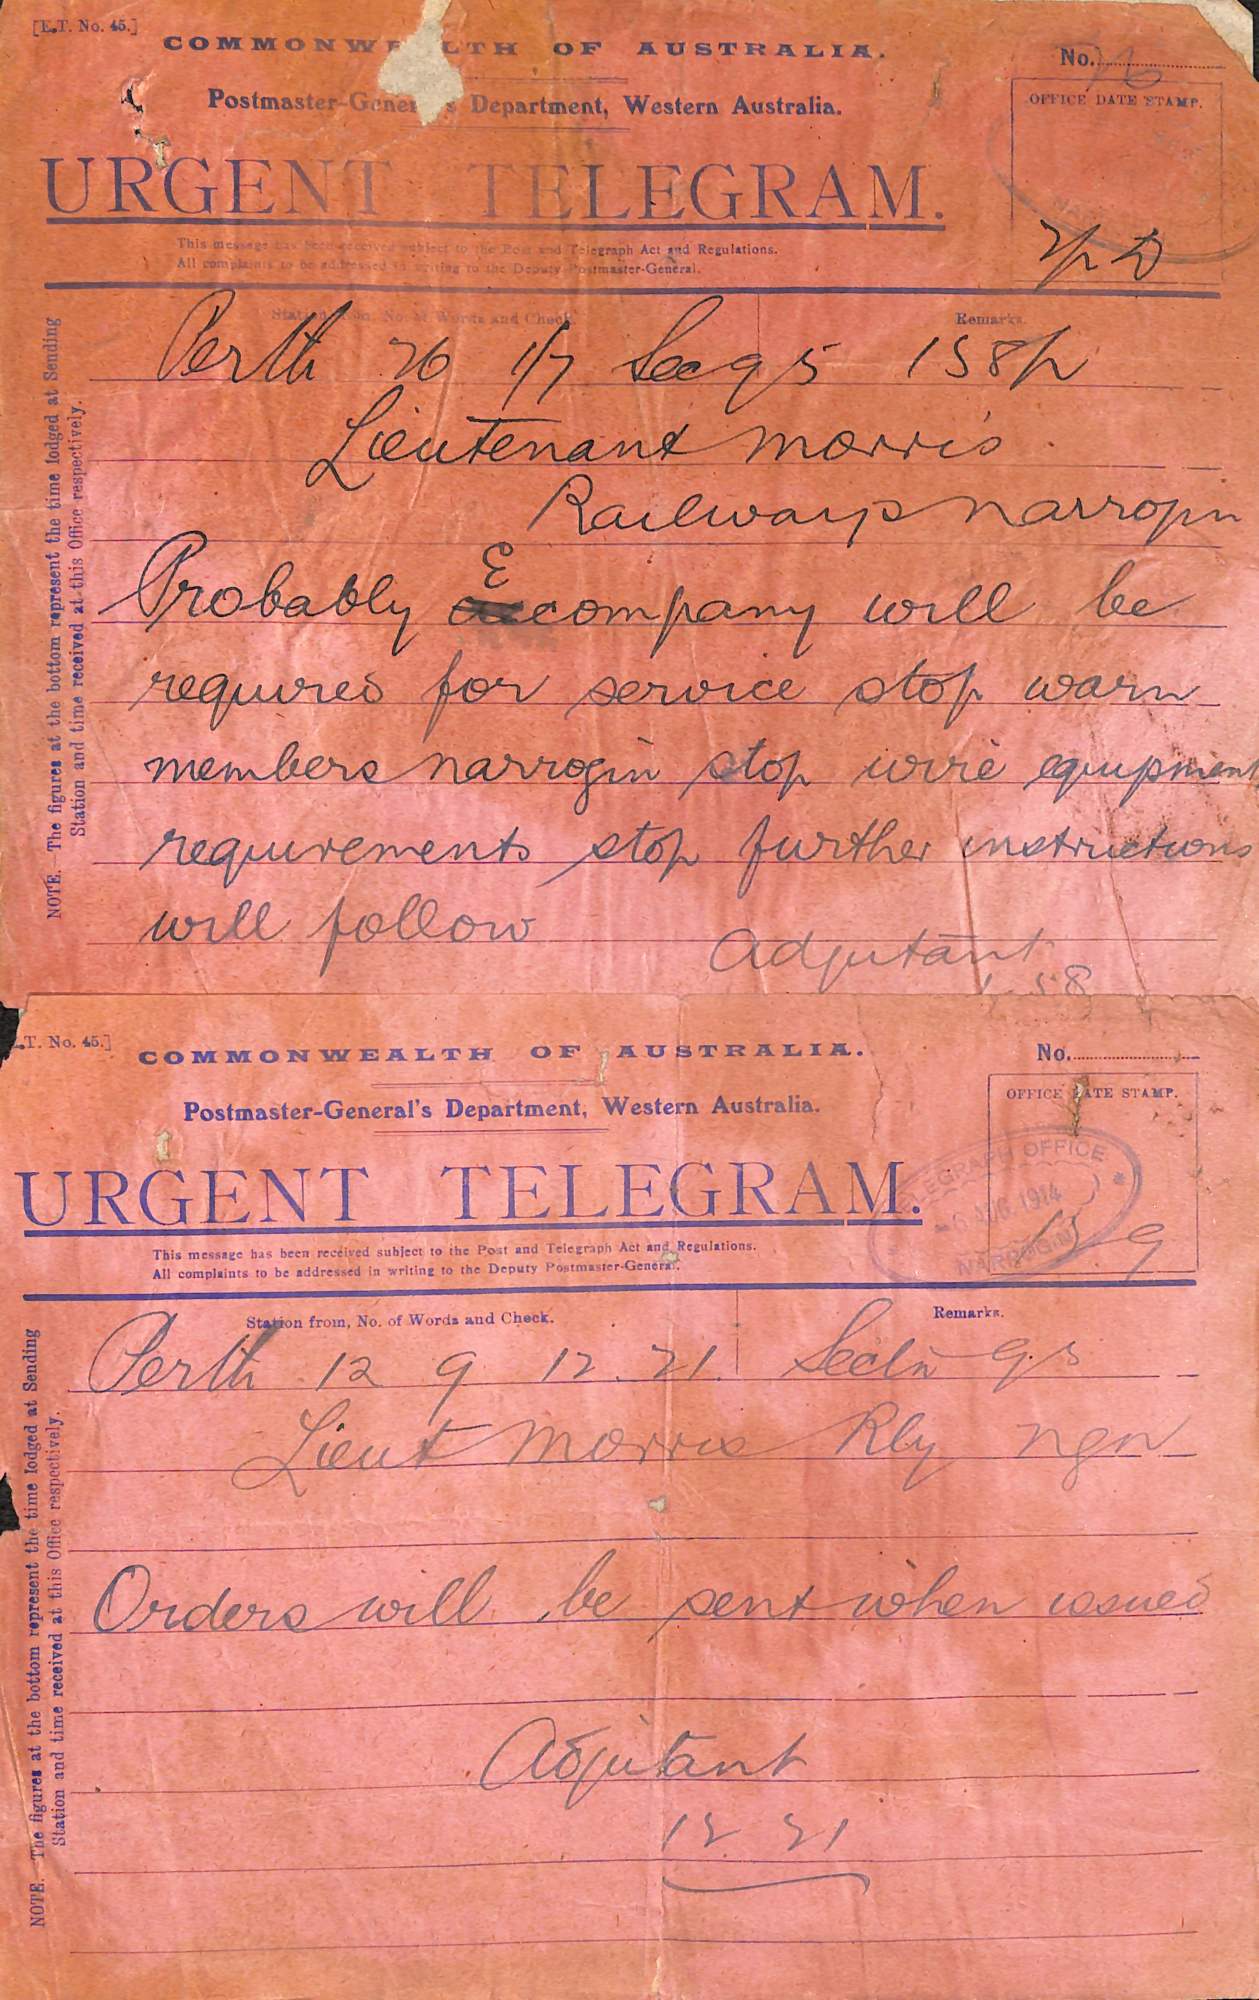 [E.T. No. 45.]
COMMONWEALTH OF AUSTRALIA.
No. 76
Postmaster-General's Department, Western Australia.
OFFICE DATE STAMP.
URGENT TELEGRAM.
This message has been received subject to the Post and Telegraph Act and Regulations.
All complaints to be addressed in writing to the Deputy Postmaster-General.
Station from, No. of Words and Check.
Remarks.
Perth 26 1/7 Sec 95 158p
Lieutenant Morris
Railways Narrogin
Probably E company will be
required for service stop warn
members narrogin stop wire equipment
requirements stop further instructions
will follow
Adjutant
1 58
NOTE.—The figures at the bottom represent the time lodged at Sending
Station and time received at this Office respectively.
E.T. No. 45.]
COMMONWEALTH OF AUSTRALIA.
No.
Postmaster-General's Department, Western Australia.
OFFICE DATE STAMP.
TELEGRAPH OFFICE
6 AUG. 1914
NARROGIN
URGENT TELEGRAM.
This message has been received subject to the Post and Telegraph Act and Regulations.
All complaints to be addressed in writing to the Deputy Postmaster-General.
Station from, No. of Words and Check.
Remarks.
Perth 12 9 12.21 95
Lieut Morris Rly ngn
Orders will be sent when issued
Adjutant
12 21
NOTE.—The figures at the bottom represent the time lodged at Sending
Station and time received at this Office respectively.